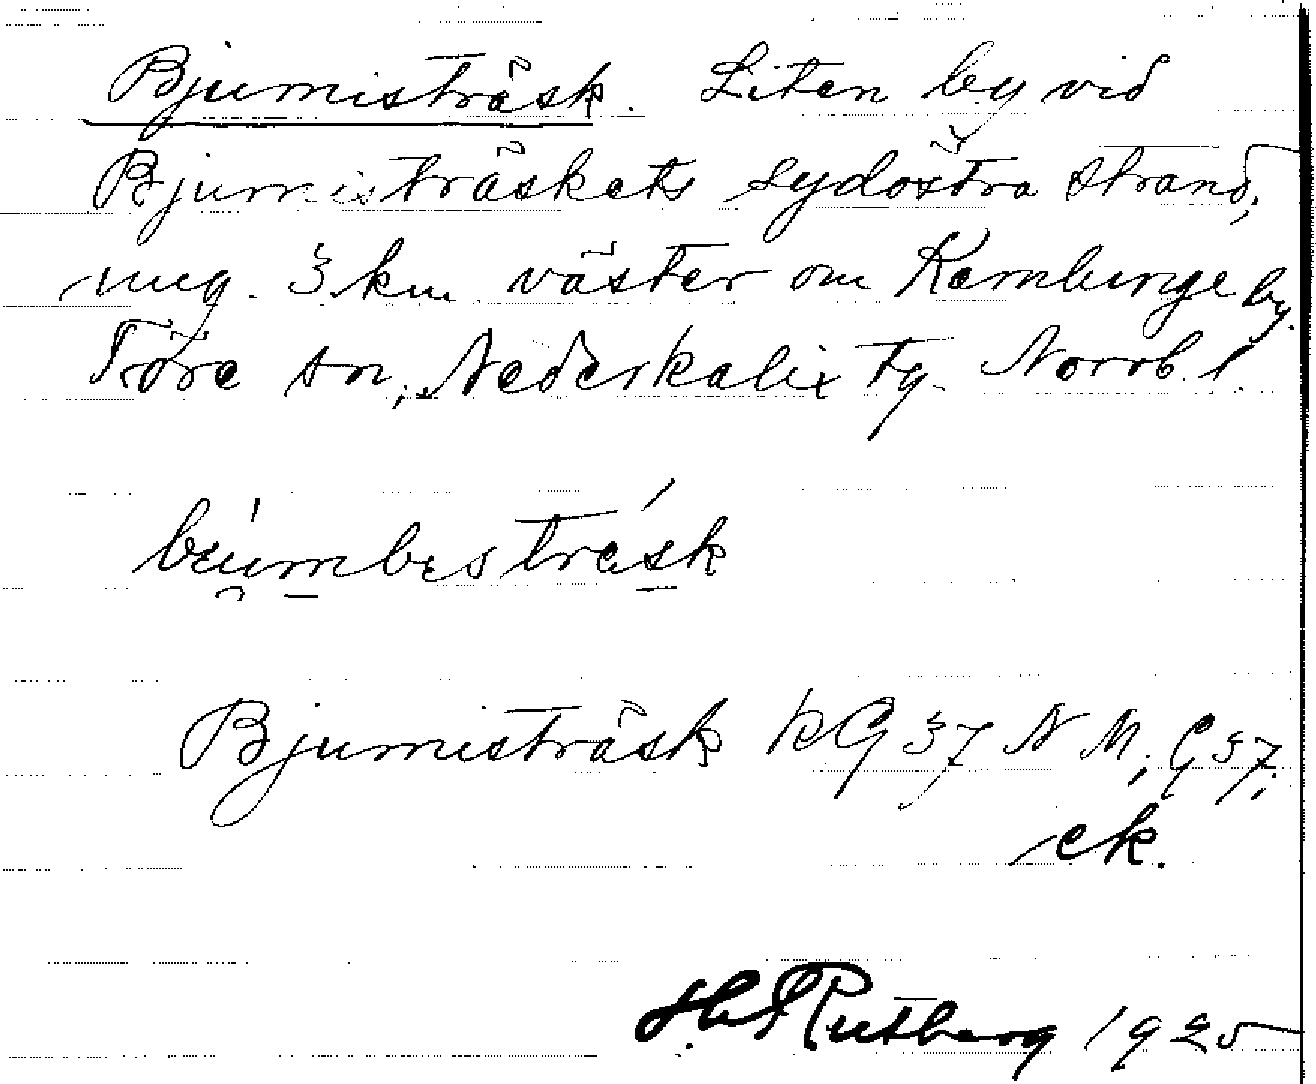 Bjumisträsk. Liten by vid
Bjumisträskets sydöstra strand,
ung. 3 km väster om Kamlunge by.
Töre sn, Nederkalix tg. Norrb. l.
Bjumisträsk KG 37 NM; G 37;
ek.
H. Rutberg 1925